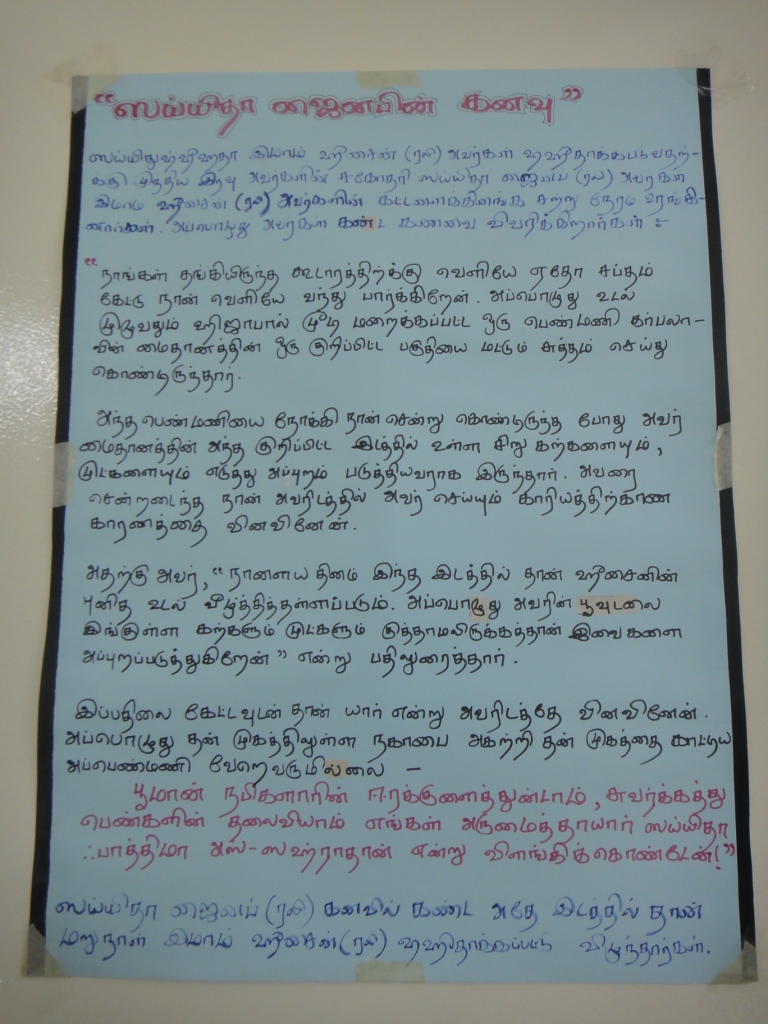 "ஸய்யிதா ஜைனபின் கனவு"
ஸய்யிதுஷ்ஷுஹதா இமாம் ஹுசைன் (ரலி) அவர்கள் ஷஹீதாக்கபடுவதற்-
கு முந்திய இரவு அவர்களின் சகோதரி ஸய்யிதா ஜைனப் (ரலி) அவர்கள்
இமாம் ஹுசைன் (ரலி) அவர்களின் கட்டளைக்கிணங்க சற்று நேரம் உறங்கி-
னார்கள். அப்பொழுது அவர்கள் கண்ட கணவை விவரிக்கிறார்கள் :-
"நாங்கள் தங்கியிருந்த கூடாரத்திற்க்கு வெளியே ஏதோ சப்தம்
கேட்டு நான் வெளியே வந்து பார்க்கிறேன். அப்பொழுது உடல்
முழுவதும் ஹிஜாபால் மூடி மறைக்கப்பட்ட ஒரு பெண்மணி கர்பலா-
வின் மைதானத்தின் ஒரு குறிப்பிட்ட பகுதியை மட்டும் சுத்தம் செய்து
கொண்டிருந்தார்.
அந்த பெண்மணியை நோக்கி நான் சென்று கொண்டிருந்த போது அவர்
மைதானத்தின் அந்த குறிப்பிட்ட இடத்தில் உள்ள சிறு கற்களையும்,
முட்களையும் எடுத்து அப்புறம் படுத்தியவராக இருந்தார். அவரை
சென்றடைந்த நான் அவரிடத்தில் அவர் செய்யும் காரியத்திற்காண
காரணத்தை வினவினேன்.
அதற்கு அவர், "நாளைய தினம் இந்த இடத்தில் தான் ஹுசைனின்
புனித உடல் வீழ்த்தித்தள்ளப்படும். அப்பொழுது அவரின் பூவுடலை
இங்குள்ள கற்களும் முட்களும் குத்தாமலிருக்கத்தான் இவை களை
அப்புறப்படுத்துகிறேன்" என்று பதிலுரைத்தார்.
இப்பதிலை கேட்டவுடன் தான் யார் என்று அவரிடத்தே வினவினேன்.
அப்பொழுது தன் முகத்திலுள்ள நகாபை அகற்றி தன் முகத்தை காட்டிய
அப்பெண்மணி வேறெவருமில்லை -
பூமான் நபிகளாரின் ஈரக்குலைத்துண்டாம், சுவர்க்கத்து
பெண்களின் தலைவியாம் எங்கள் அருமைத்தாயார் ஸய்யிதா
ஃபாத்திமா அஸ்-ஸஹ்ராதான் என்று விளங்கிக்கொண்டேன்!"
ஸய்யிதா ஜைனப் (ரலி) கனவில் கண்ட அதே இடத்தில் தான்
மறுநாள் இமாம் ஹுசைன் (ரலி) ஷஹீதாக்கப்பட்டு விழுந்தார்கள்.